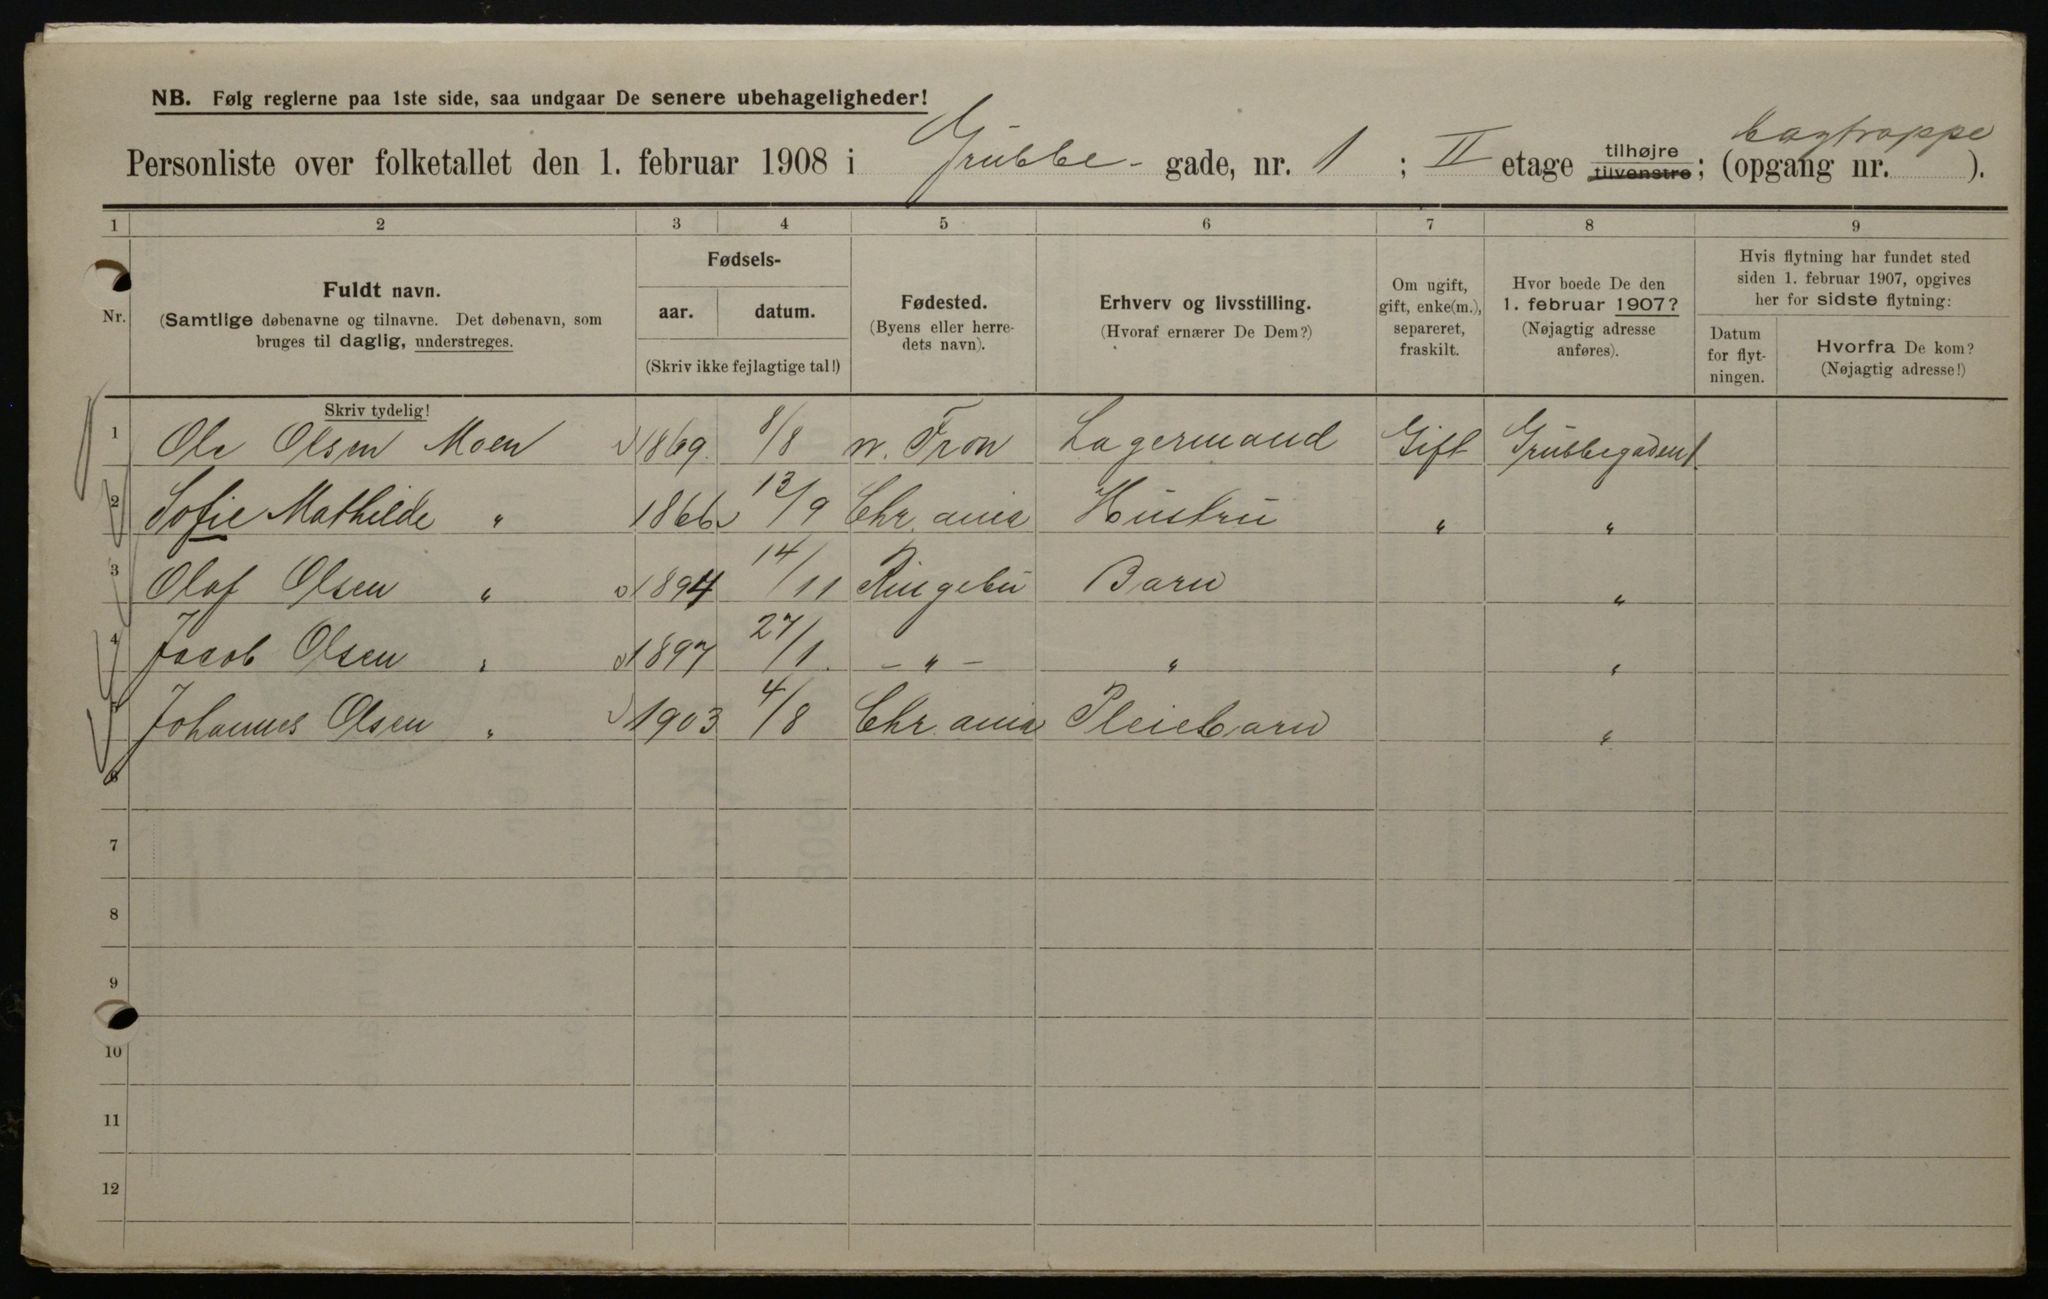 NB. Følg reglerne paa 1ste side, saa undgaar De senere ubehageligheder!
bagtrappe
Personliste over folketallet den 1. februar 1908 i Grubbe- gade, nr. 1 ; II etage tilhøjre tilvenstre; (opgang nr. ).
1 2 3 4 5 6 7 8 9
Nr. Fuldt navn. (Samtlige døbenavne og tilnavne. Det døbenavn, som bruges til daglig, understreges.
Skriv tydelig!
Fødsels-
aar. datum.
(Skriv ikke fejlagtige tal!)
Fødested. (Byens eller herredets navn).
Erhverv og livsstilling. (Hvoraf ernærer De Dem?)
Om ugift, gift, enke(m.), separeret, fraskilt.
Hvor boede De den 1. februar 1907? (Nøjagtig adresse anføres).
Hvis flytning har fundet sted siden 1. februar 1907, opgives her for sidste flytning:
Datum for flytningen.
Hvorfra De kom? (Nøjagtig adresse!)
1 Ole Olsen Moen 1869. 8/8 n. Fron Lagermand Gift Grubbegaden 1
2 Sofie Mathilde " 1866 13/9 Chr. ania Hustru " "
3 Olaf Olsen " 1894 14/11 Ringebu Barn "
4 Jacob Olsen " 1897 27/1. - " - " "
5 Johannes Olsen " 1903 4/8 Chr. ania Pleiebarn "
6
7
8
9
10
11
12